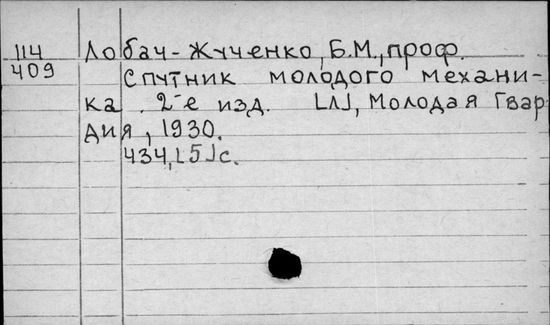 114 Лобач-Жученко, Б.М., проф.
409 Спутник молодого механи-
ка. 2-е изд. [Л], Молодая Гвар
дия, 1930.
434,[5]с.